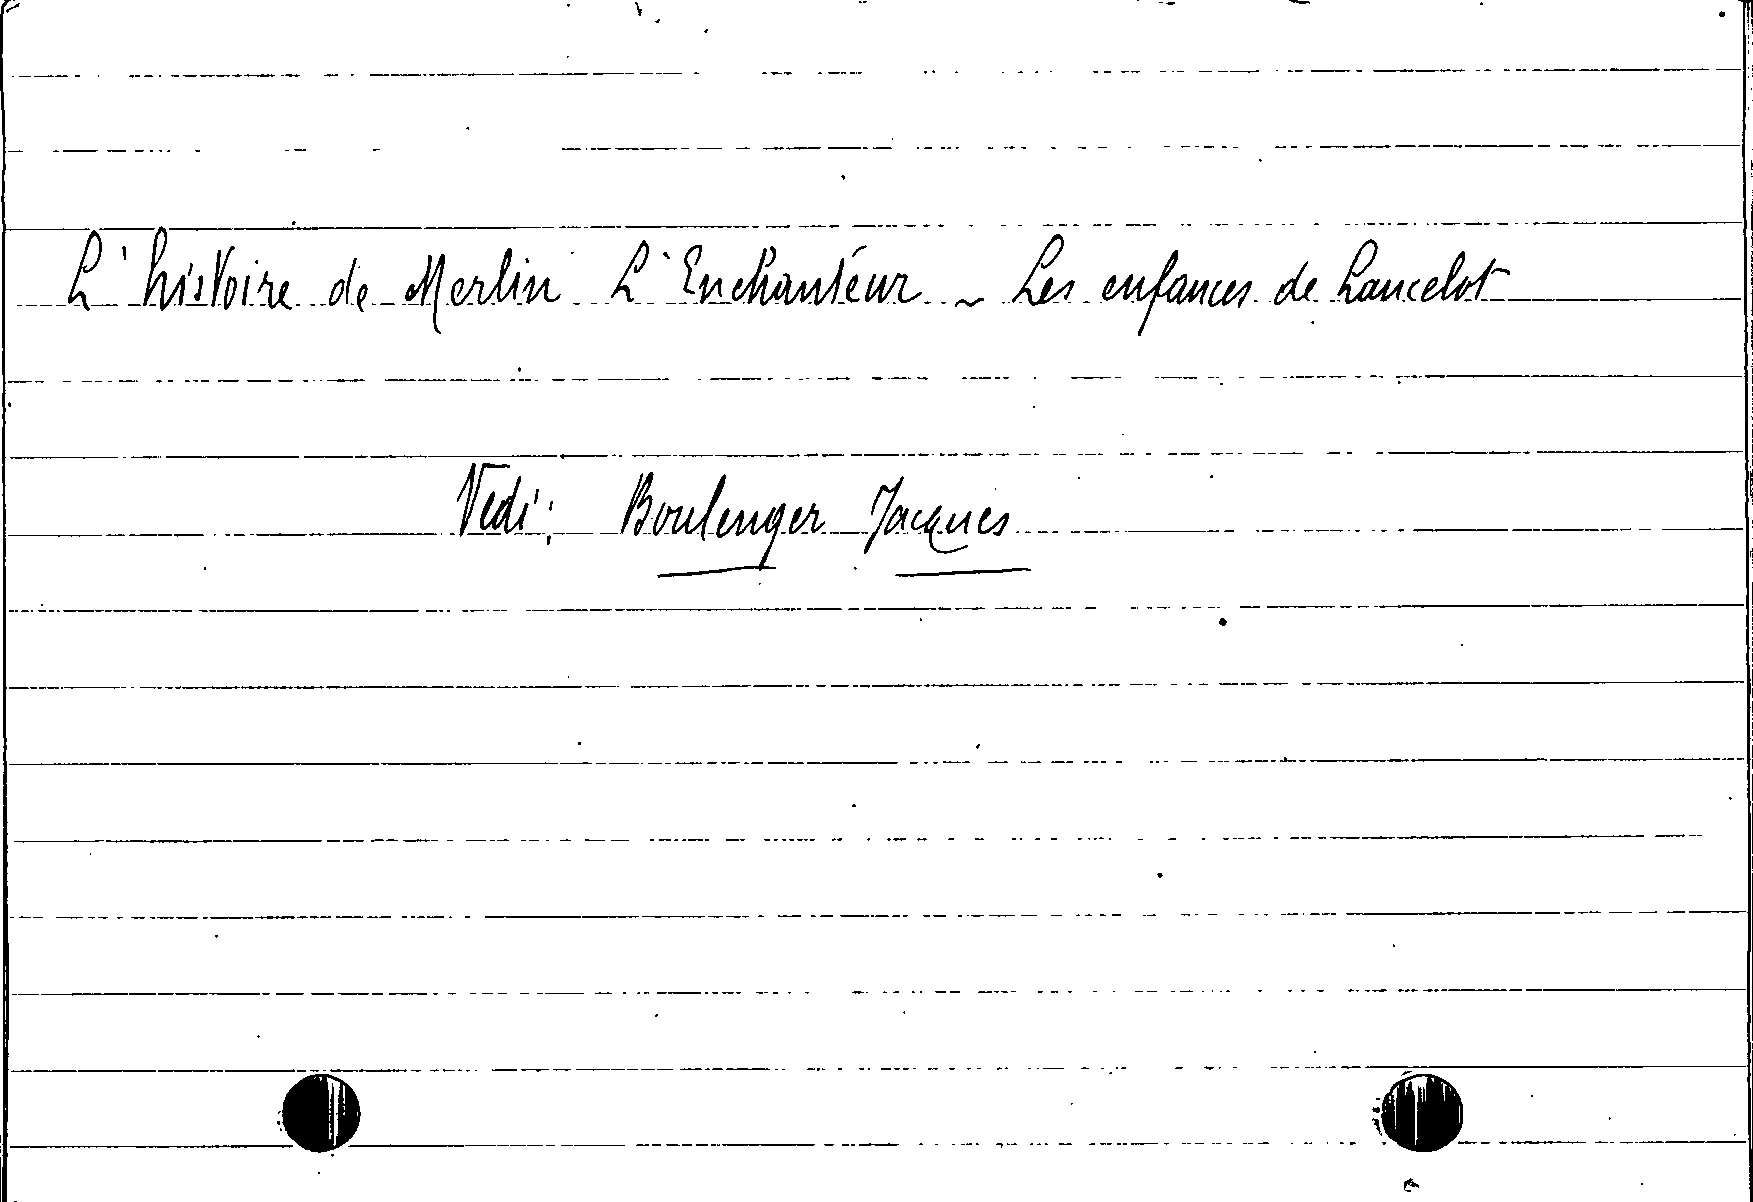 L'histoire de Merlin L'Enchanteur - Les enfances de Lancelot
Vedi: Boulenger Jacques